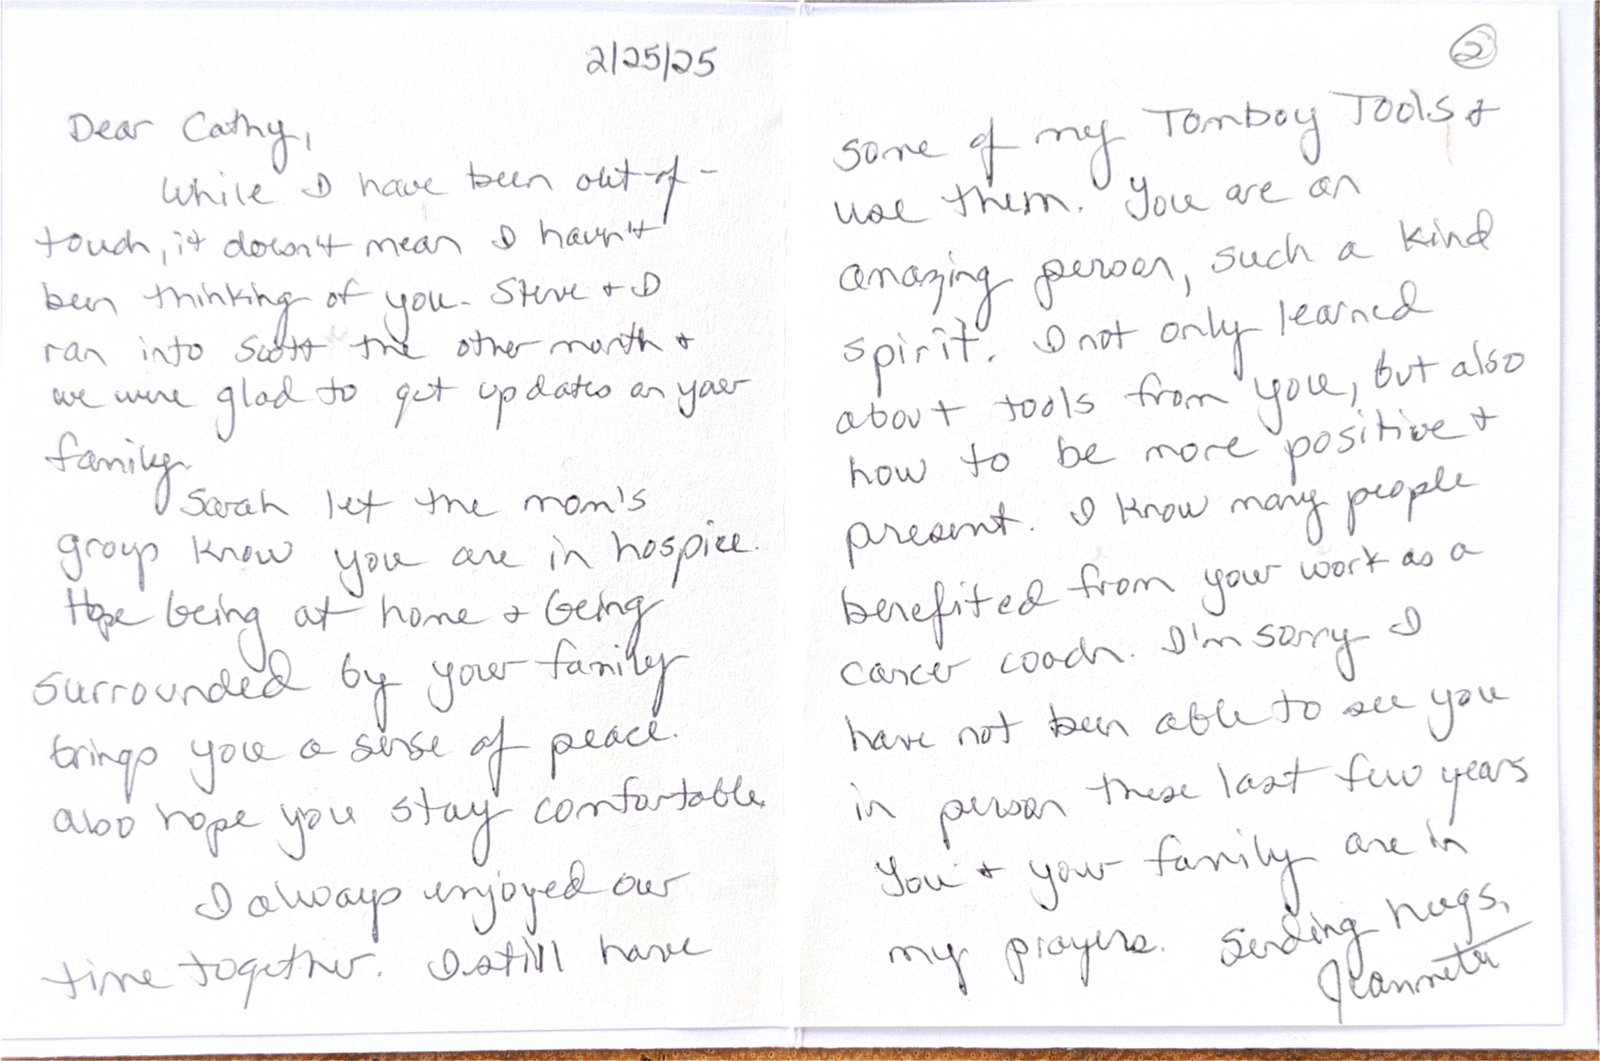 2/25/25
Dear Cathy,
While I have been out-of-
touch, it doesn't mean I havn't
been thinking of you. Steve + I
ran into Scott the other month +
we were glad to get updates on your
family.
Sarah let the mom's
group know you are in hospice.
Hope being at home + being
surrounded by your family
brings you a sense of peace.
Also hope you stay comfortable.
I always enjoyed our
time together. I still have
2
some of my Tomboy Tools +
use them. You are an
amazing person, such a kind
spirit. I not only learned
about tools from you, but also
how to be more positive +
present. I know many people
benefited from your work as a
cancer coach. I'm sorry I
have not been able to see you
in person these last few years
You + your family are in
my prayers. Sending hugs,
Jeannette